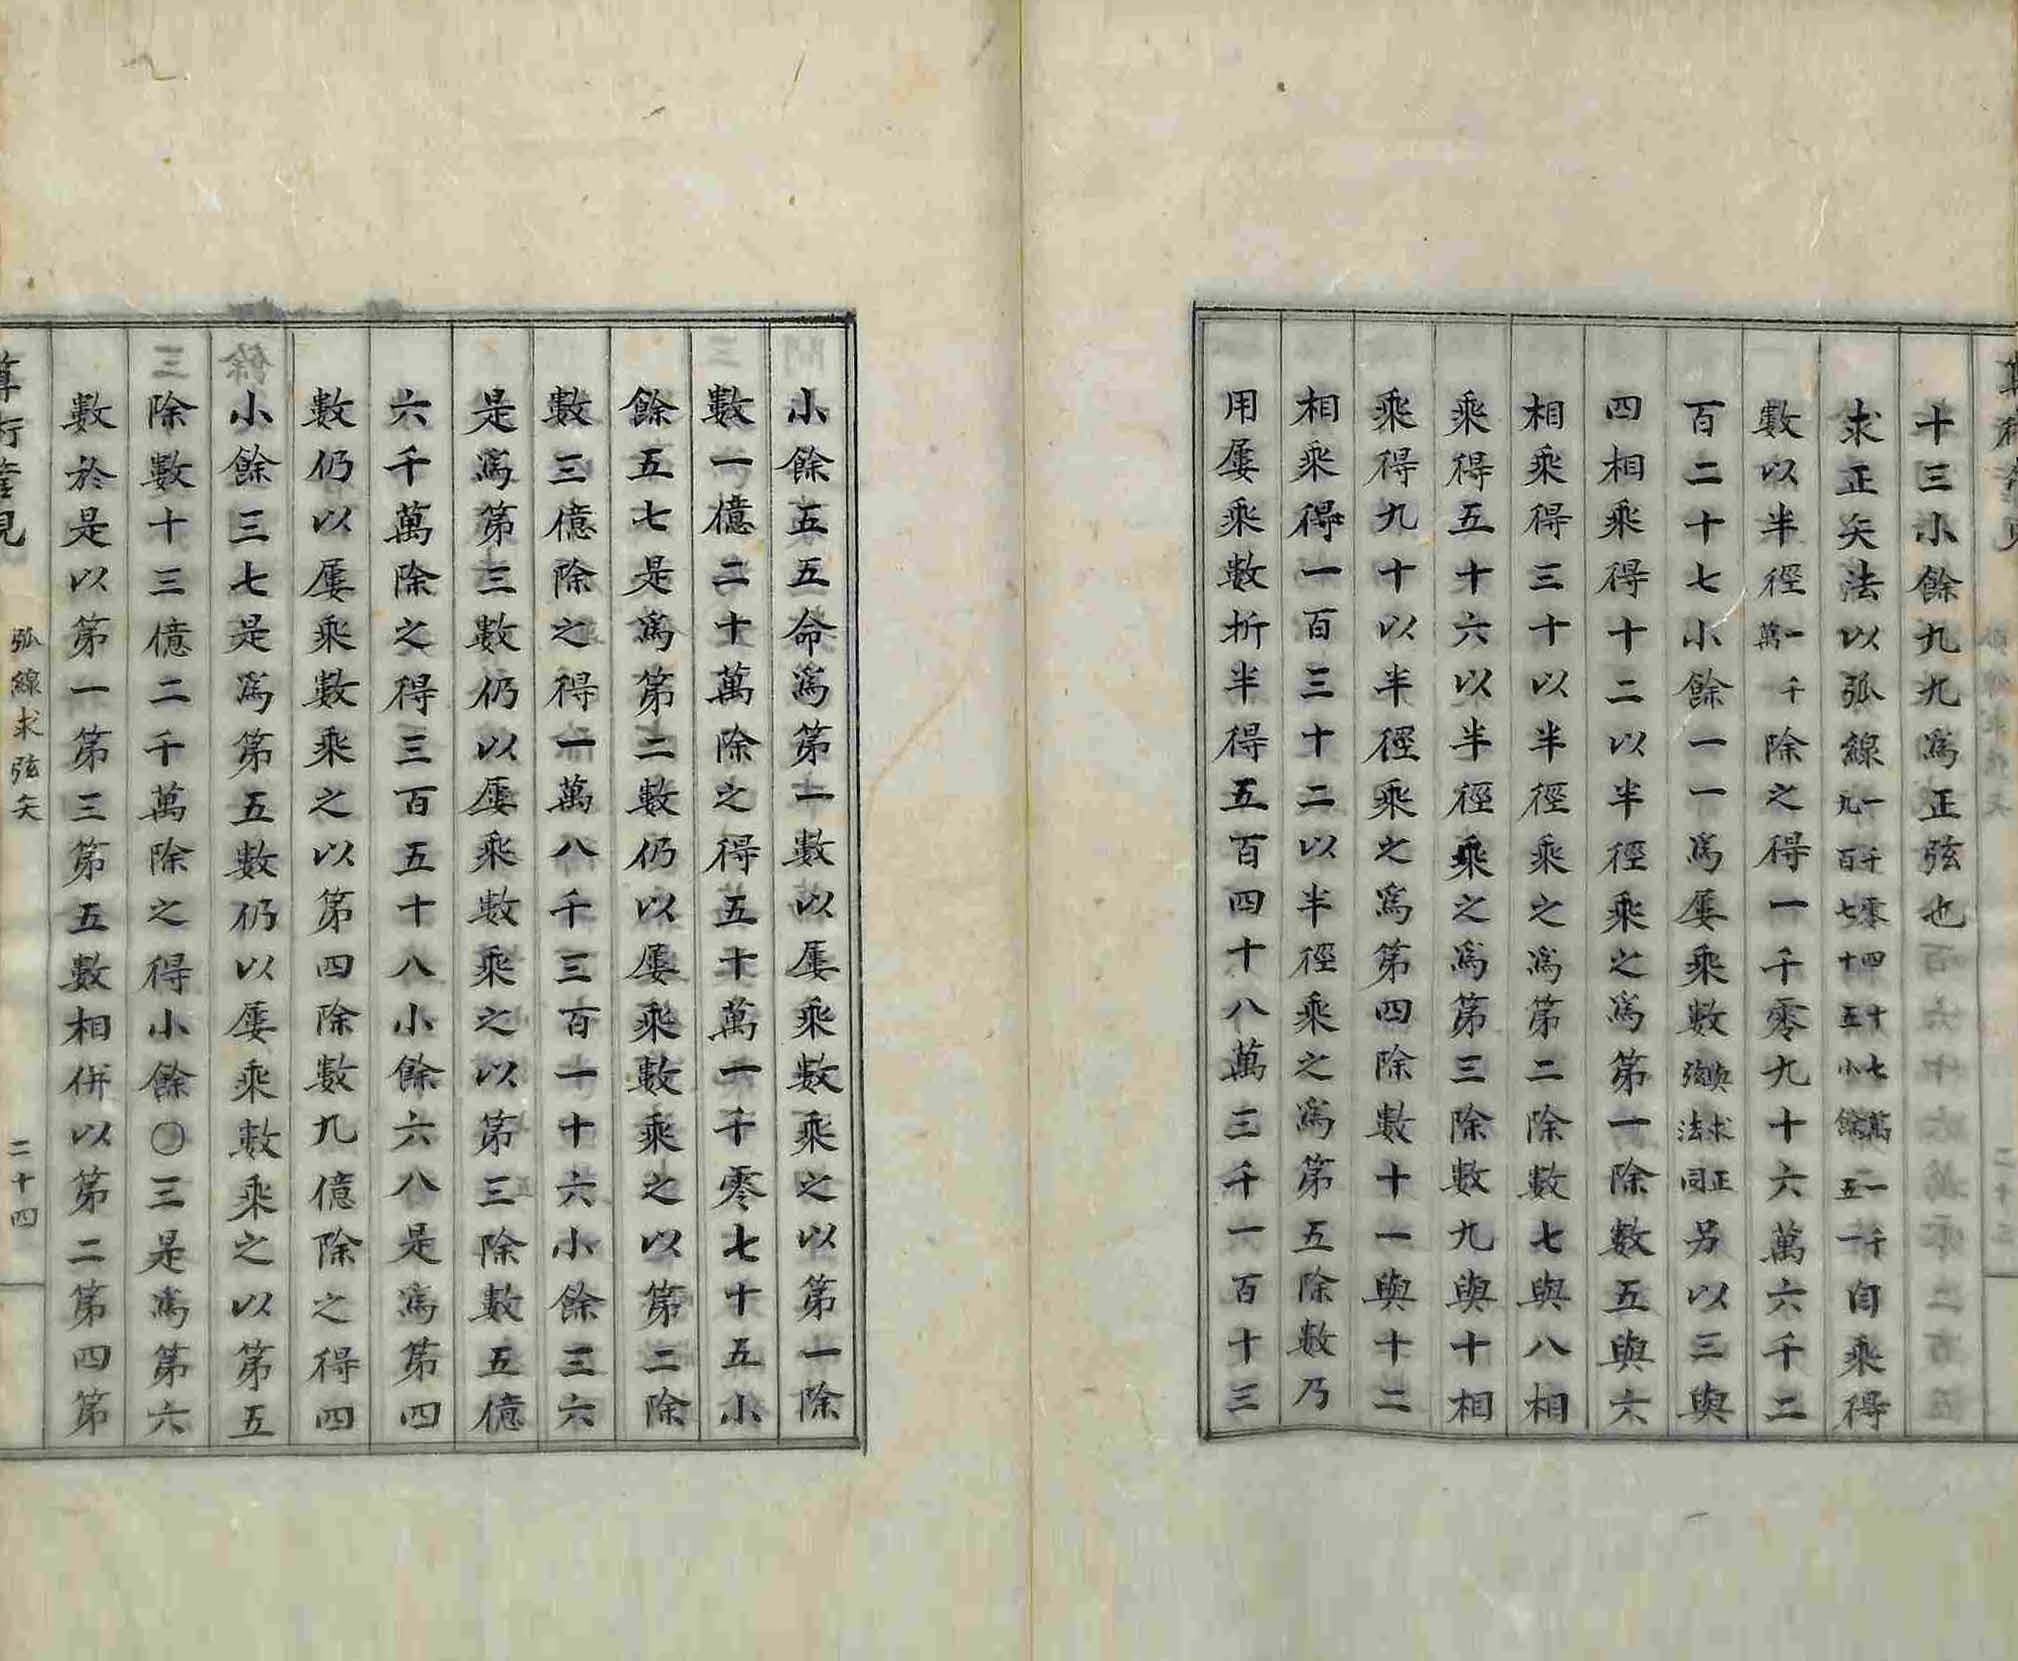 十三小餘九九九爲正弦也
求正矢法以弧線一千零四十七萬一千九百七十五小餘五一自乘得
數以半徑一千萬除之得一千零九十六萬六千二
百二十七小餘一一爲屢乘數與求正弦法同另以三與
四相乘得十二以半徑乘之爲第一除數五與六
相乘得三十以半徑乘之爲第二除數七與八相
乘得五十六以半徑乘之爲第三除數九與十相
乘得九十以半徑乘之爲第四除數十一與十二
相乘得一百三十二以半徑乘之爲第五除數乃
用屢乘數折半得五百四十八萬三千一百十三
小餘五五命爲第一數以屢乘數乘之以第一除
數一億二十萬除之得五十萬一千零七十五小
餘五七是爲第二數仍以屢乘數乘之以第二除
數三億除之得一萬八千三百一十六小餘三六
是爲第三數仍以屢乘數乘之以第三除數五億
六千萬除之得三百五十八小餘六八是爲第四
數仍以屢乘數乘之以第四除數九億除之得四
小餘三七是爲第五數仍以屢乘數乘之以第五
除數十三億二千萬除之得小餘〇三是爲第六
數於是以第一第三第五數相併以第二第四第
弧線求弦矢
二十四